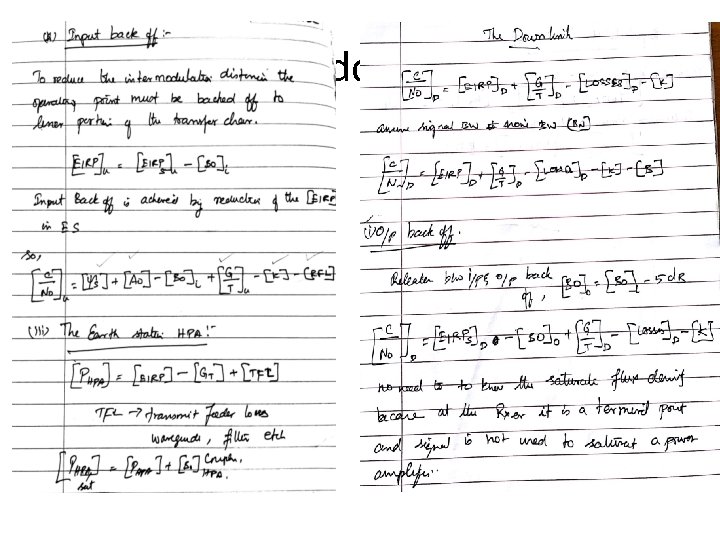 (ii) Input back off :-
To reduce the intermodulation distorsion the
operating point must be backed off to
linear portion of the transfer char.
[EIRP]u = [EIRPs]u - [BO]i
Input Back off is achieved by reduction of the [EIRP]
in ES
so,
[C/No]u = [ψs] + [Ao] - [BO]i + [G/T]u - [K] - [RFL]
(iii) The Earth station HPA :-
[PHPA] = [EIRP] - [GT] + [TFL]
TFL → transmit feeder loss
waveguide, filter etc
[PHPA sat] = [PHPA] + [BO] HPA.
do
The Downlink
[C/No]D = [EIRP]D + [G/T]D - [LOSSES]D - [K]
assume signal BW noise BW (BN)
[C/N]D = [EIRP]D + [G/T]D - [Losses]D - [K] - [B]
(i) O/p back off.
Relation b/w i/p & o/p back
off, [BO]o = [BO]i - 5 dB
[C/No]D = [EIRPs]D - [BO]o + [G/T]D - [Losses]D - [K]
no need to know the saturate flux density
because at the Rxer it is a terminal point
and signal is not used to saturate a power
amplifier..